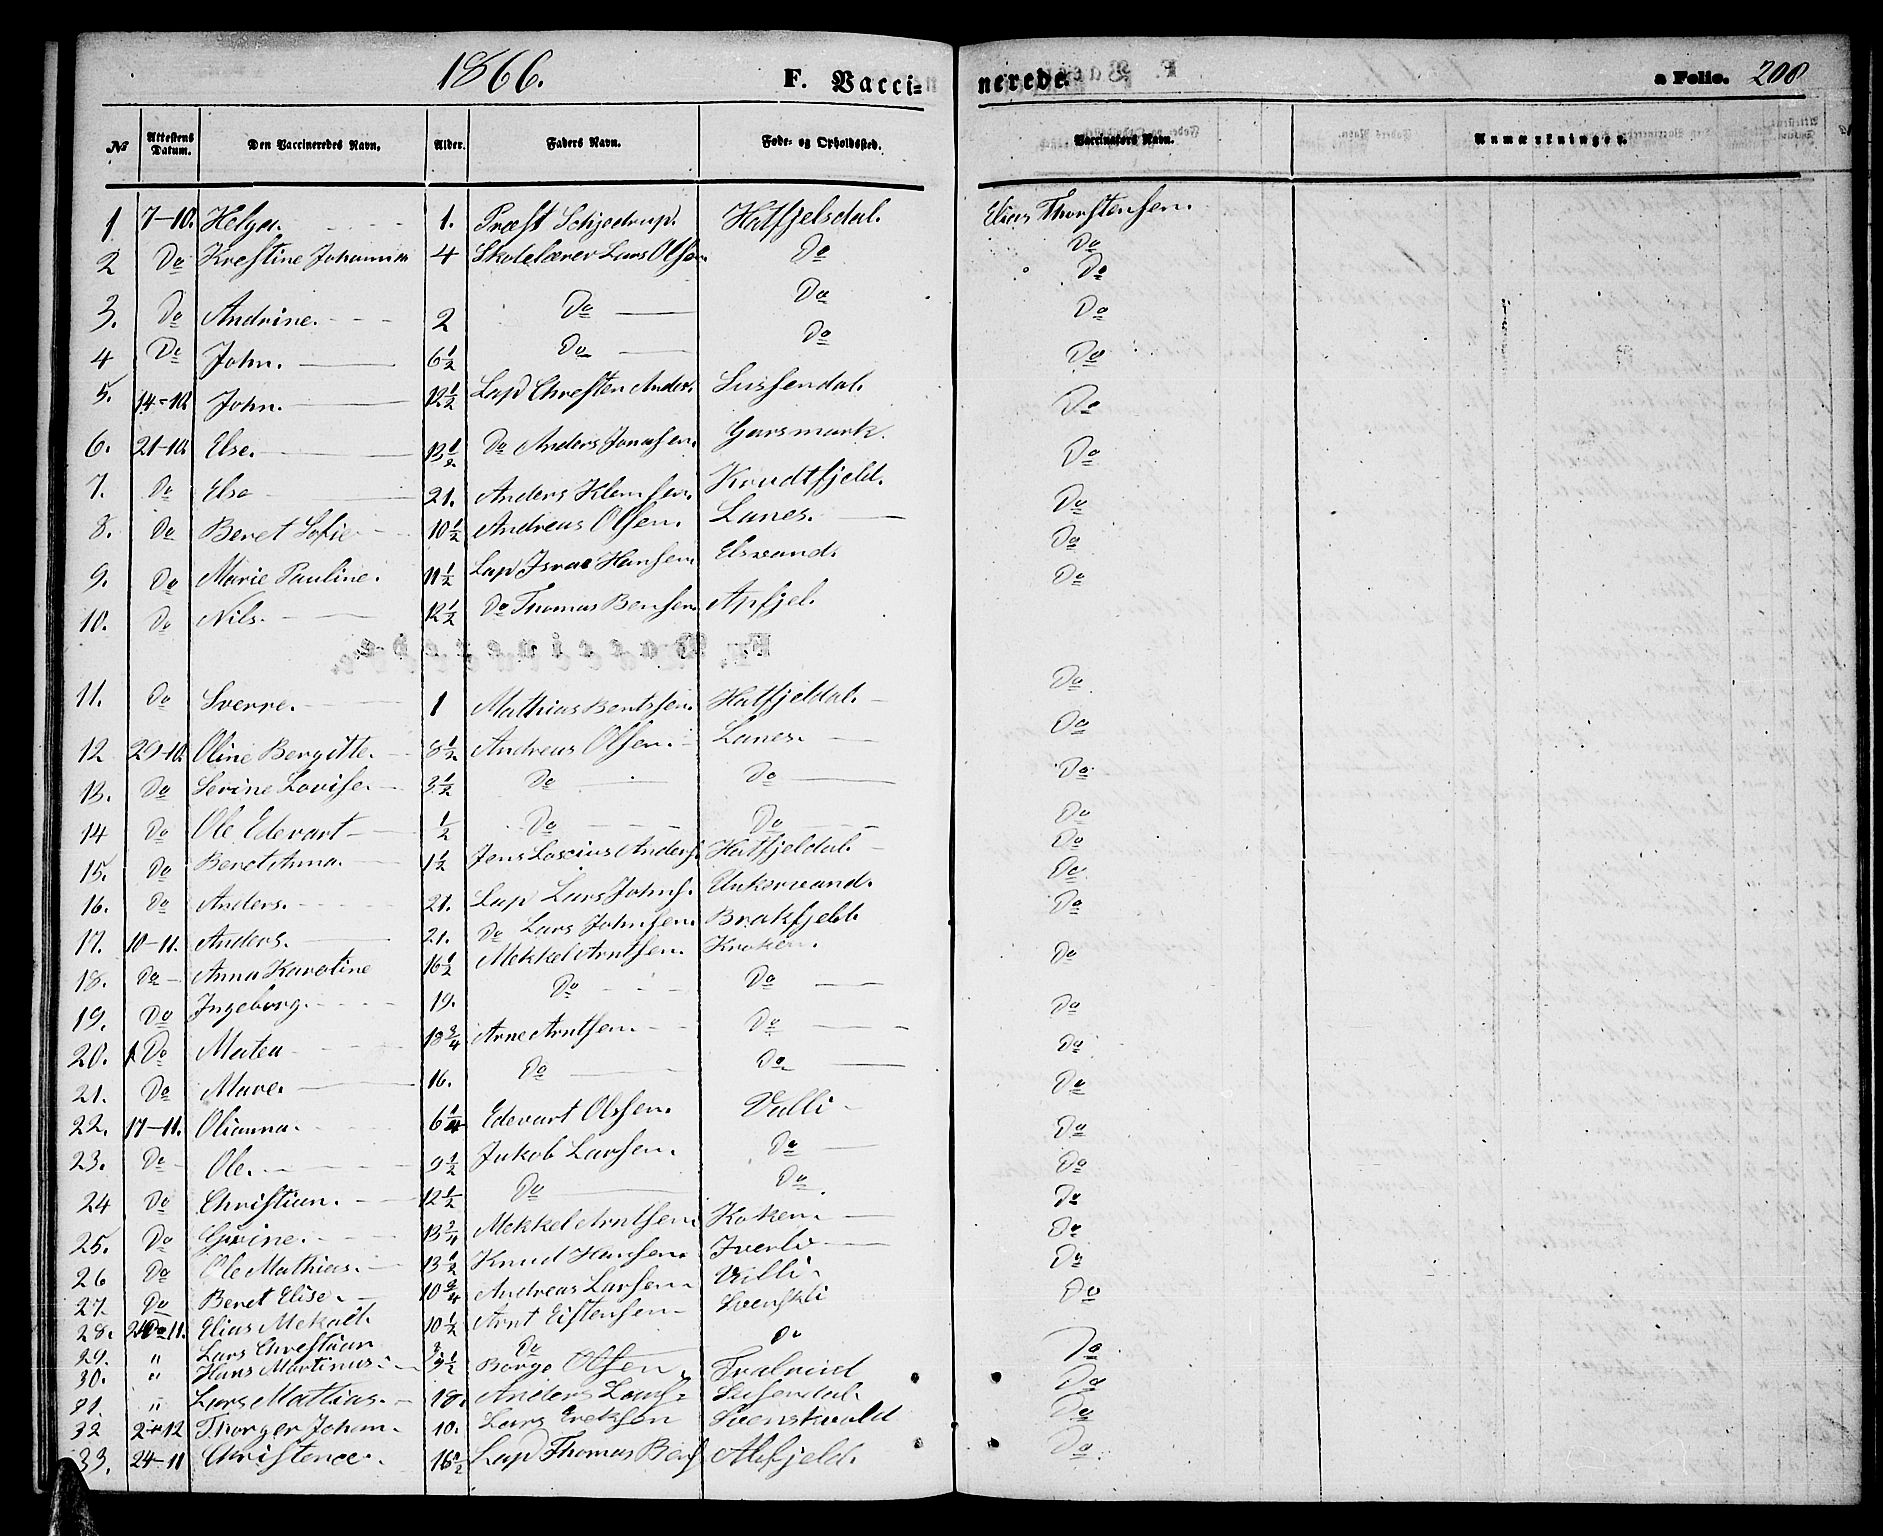 1866.
F. Vacci=
nerede.
a Folio. 208
№ Attestens Datum. Den Vaccineredes Navn. Alder. Faders Navn. Føde- og Opholdssted. Vaccinators Navn. Anmærkninger.
1 7-10. Helga. 1. Præst Schjedrup. Hatfjelsdal. Elias Thorstensen.
2 Do Krestine Johanna 4 Skolelærer Lars Olsen Do Do
3. Do Andrine. 2 Do Do Do
4 Do John. 6½ Do Do Do
5. 14-10. John. 12½ Lap Chresten Anders. Sussendal. Do
6. 21-10. Else. 13½ Do Anders Jonasen. Garsmark. Do
7. Do Else 21. Anders Klemsen. Knudtfjeld. Do
8. Do Beret Sofie 10½ Andreas Olsen. Lanes. Do
9. Do Marie Pauline. 11½ Lap Israe Hansen. Elsvand. Do
10. Do Nils. 12½ Do Thomas Bensen Apfjel. Do
11. Do Sverre. 1 Mathias Bentsen. Hatfjeldal. Do
12 29-10. Oline Bergitte. 8½ Andreas Olsen. Lanes. Do
13. Do Serine Lovise. 3½ Do Do Do
14 Do Ole Edevart ½ Do Do Do
15. Do Beret Anna. 1½ Jens Anders. Hatfjeldal. Do
16. Do Anders. 21. Lap Lars Johns. Unkervand. Do
17. 10-11. Anders. 21. Do Lars Johnsen. Brakfjeld. Do
18. Do Anna Karoline 16½ Mekkel Arntsen. Kroken. Do
19. Do Ingeborg. 19. Do Do Do
20. Do Matea 18¾ Arne Arntsen. Do Do
21. Do Mare. 16. Do Do Do
22. 17-11. Olianna. 6¼ Edevart Olssen. Valli Do
23. Do Ole. 9½ Jakob Larsen. Do Do
24 Do Christian. 12½ Do Do Do
25. Do 13¾ Mekkel Arntsen. Koken. Do
26 Do Ole Mathias. 13½ Knud Hansen. Iverli Do
27 Do Beret Elise. 10¾ Andreas Larsen Villi Do
28. 24-11. Elias Mekael. 10½ Arnt Eistensen Svenskli Do
29. " Lars Chrestian Do Do
30. " Hans Martinus. 3½ Børge Olsen Do
31. " Lars Mathias. 18. Anders Lars. Susendal. Do
32 2-12 Thorger Johan. 10. Lars Ereksen Svenskvold Do
33. 24-11 Christence. 16½ Lap Thomas Bens Abfjeld. Do